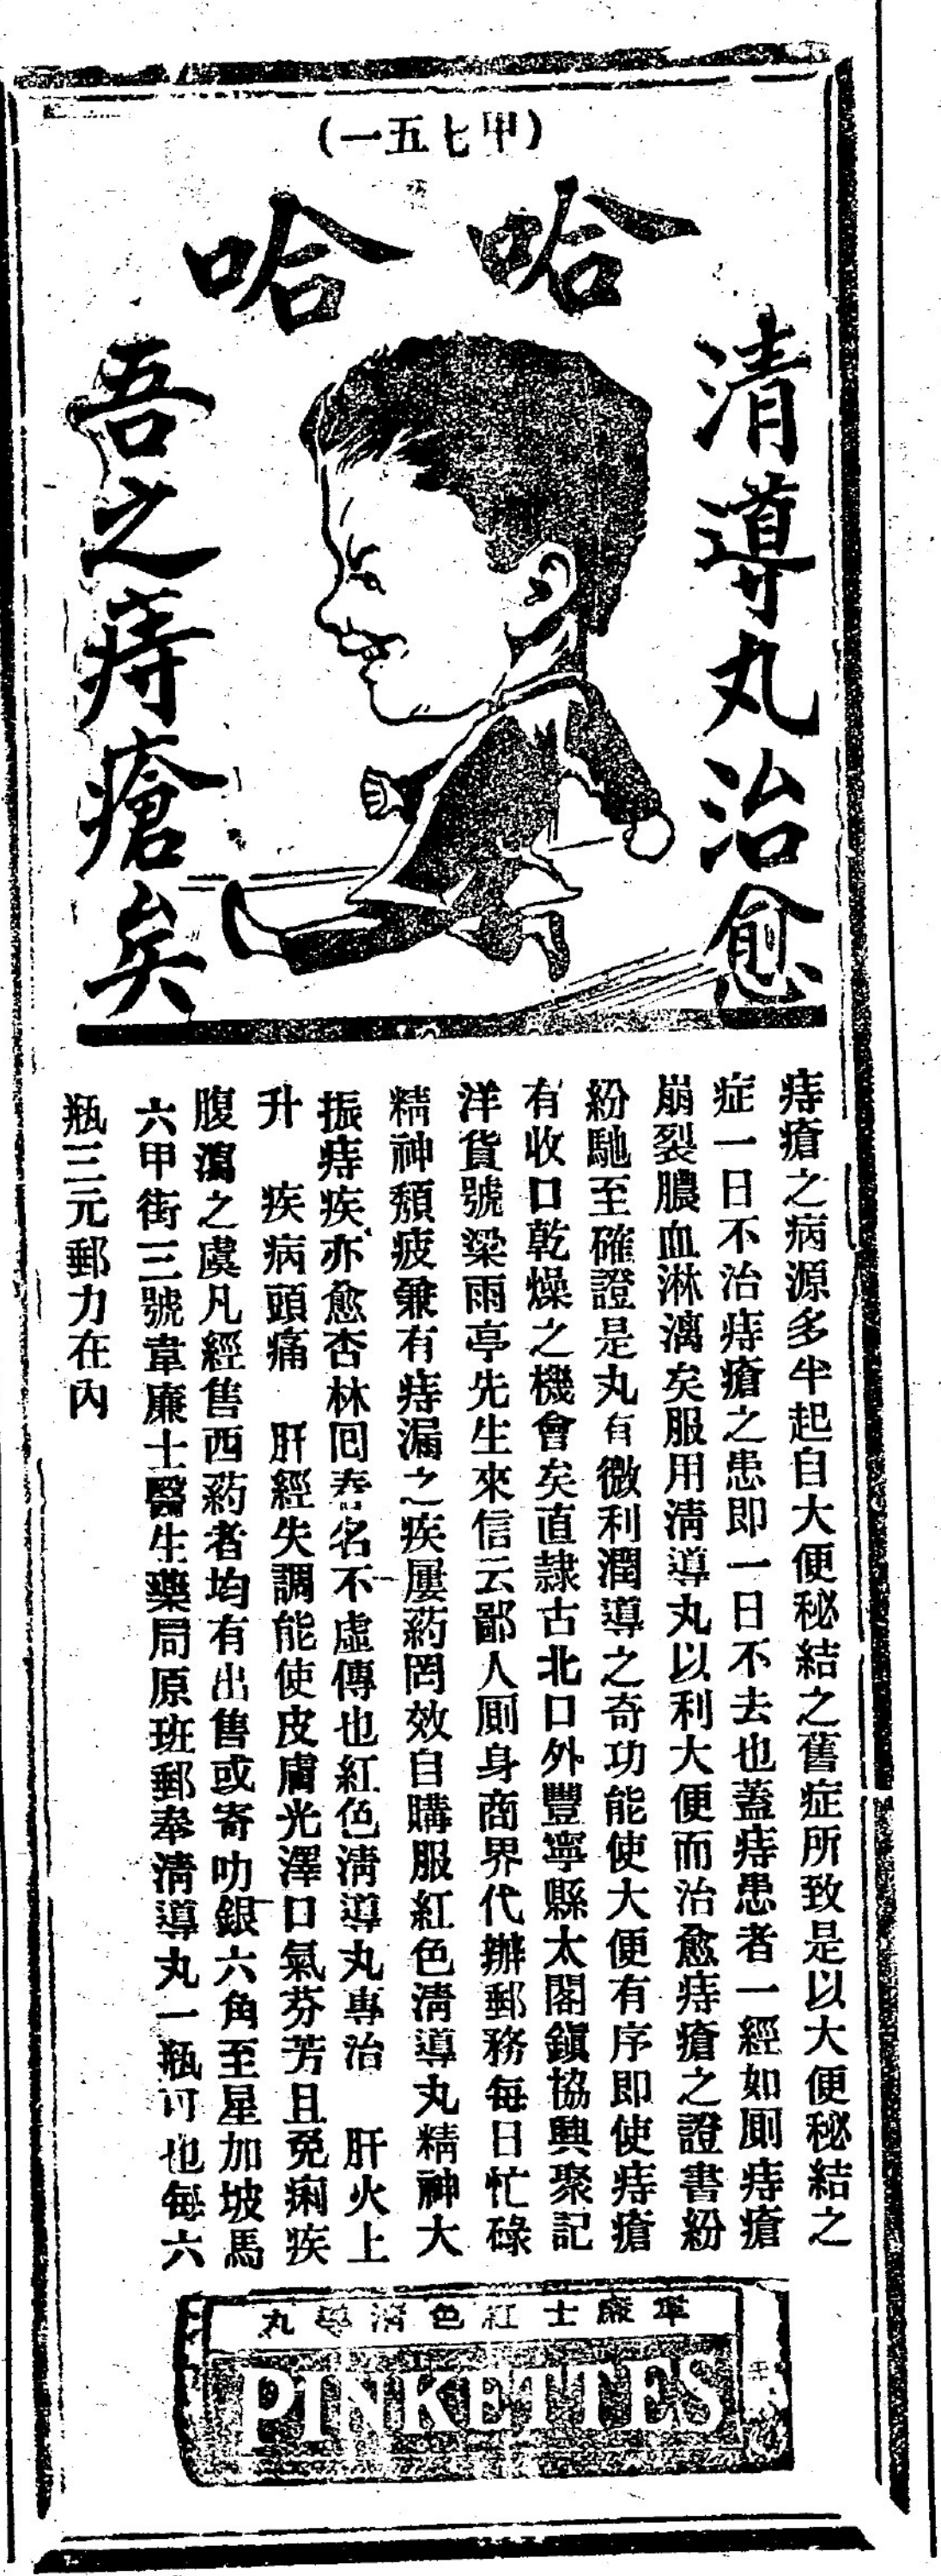 (一五七甲)
哈哈
清導丸治愈
吾之痔瘡矣
痔瘡之病源多半起自大便秘結之舊症所致是以大便秘結之
症一日不治痔瘡之患即一日不去也蓋痔患者一經如厠痔瘡
崩裂膿血淋漓矣服用清導丸以利大便而治愈痔瘡之證書紛
紛馳至確證是丸有微利潤導之奇功能使大便有序即使痔瘡
有收口乾燥之機會矣直隷古北口外豐寧縣太閣鎭協興聚記
洋貨號梁雨亭先生來信云鄙人厠身商界代辦郵務每日忙碌
精神頽疲兼有痔漏之疾屢葯罔效自購服紅色清導丸精神大
振痔疾亦愈杏林囘春名不虛傳也紅色清導丸專治 肝火上
升 疾病頭痛 肝經失調能使皮膚光澤口氣芬芳且免痢疾
腹瀉之虞凡經售西葯者均有出售或寄叻銀六角至星加坡馬
六甲街三號韋廉士醫生藥局原班郵奉清導丸一瓶可也每六
瓶三元郵力在內
韋廉士紅色清導丸
PINKETTES